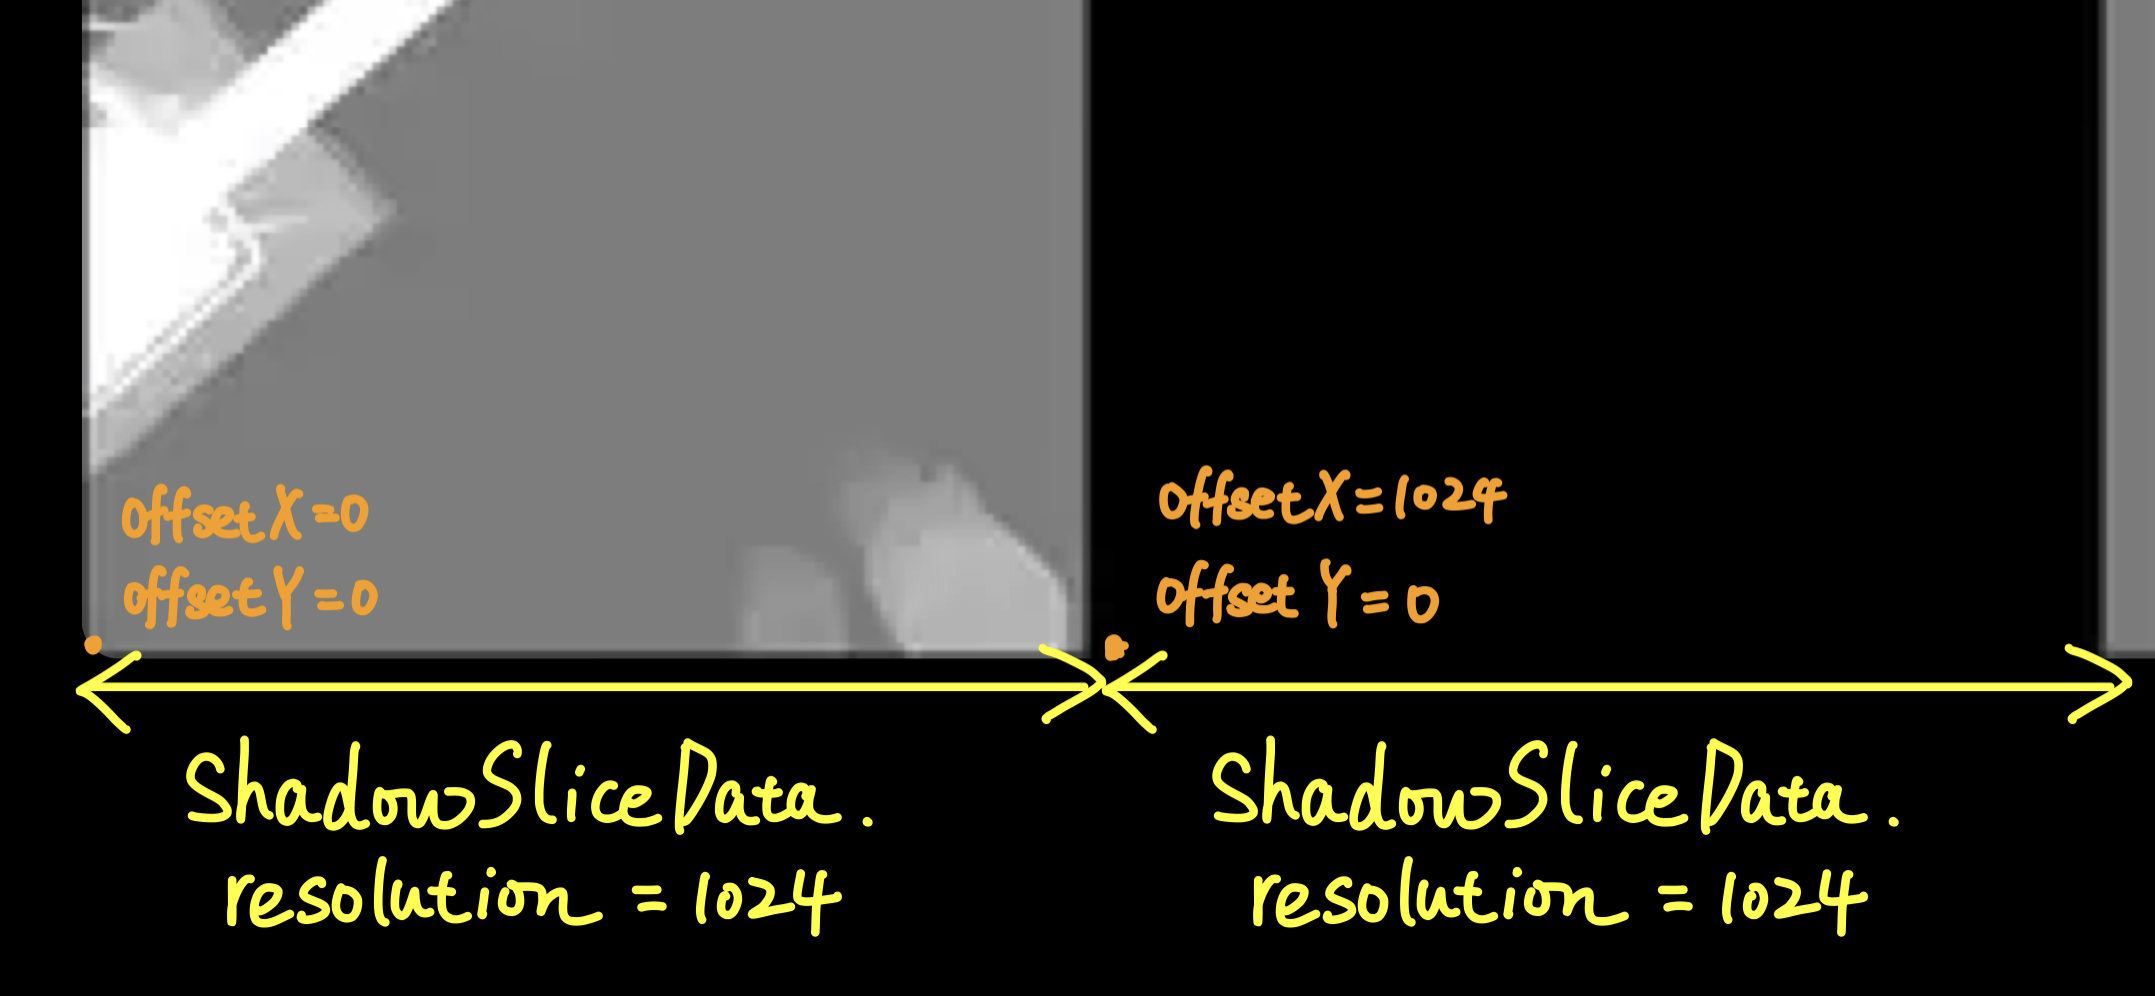 offsetX=0
offsetY=0
offsetX=1024
offset Y=0
ShadowSliceData.
resolution = 1024
ShadowSliceData.
resolution = 1024